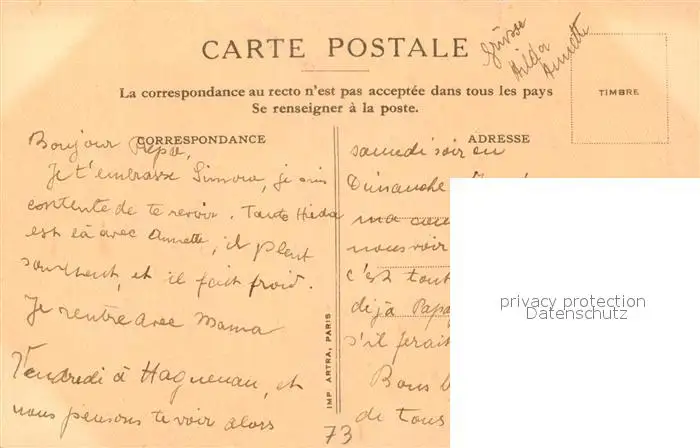 CARTE POSTALE
Grüsse
Hilda
Annette
La correspondance au recto n'est pas acceptée dans tous les pays
Se renseigner à la poste.
TIMBRE
CORRESPONDANCE
Bonjour Pépé,
Je t'embrasse, je suis
contente de te revoir. Tante Hilda
est là avec Annette, il pleut
souvent, et il fait froid.
Je rentre avec Mama
Vendredi à Haguenau, et
nous pensons te voir alors
IMP. ARTRA, PARIS
73
ADRESSE
samedi soir ou
Dimanche
ma
nous voir
c'est tout
déjà Papa
s'il ferait
Bons
de tous
privacy protection
Datenschutz